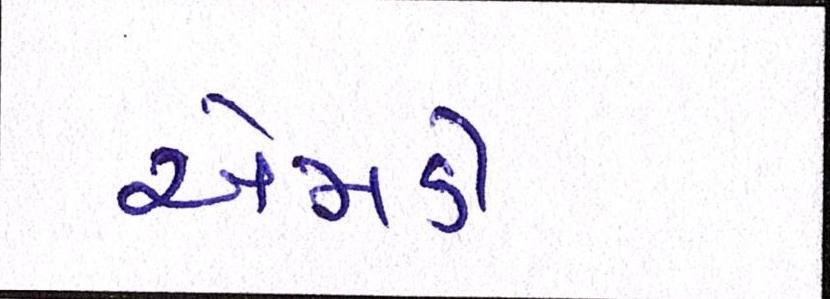 એમડી